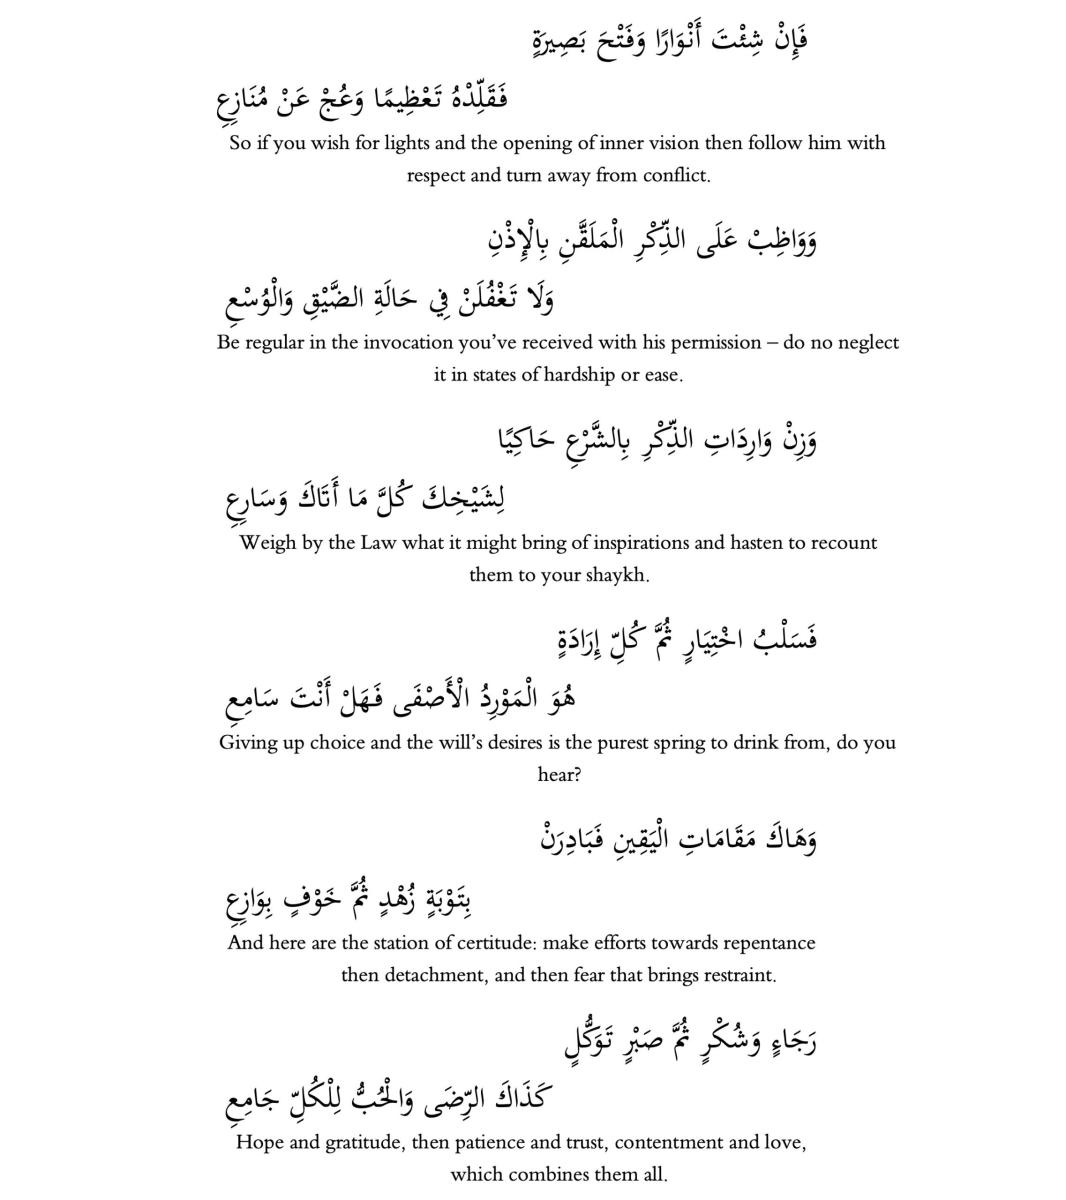 فَإِنْ شِئْتَ أَنْوَارًا وَفَتْحَ بَصِيرَةٍ
فَقَلِّدْهُ تَعْظِيمًا وَعُجْ عَنْ مُنَازِعِ
So if you wish for lights and the opening of inner vision then follow him with
respect and turn away from conflict.
وَوَاظِبْ عَلَى الذِّكْرِ الْمَلَقَّنِ بِالْإِذْنِ
وَلَا تَغْفُلَنْ فِي حَالَةِ الضَّيْقِ وَالْوُسْعِ
Be regular in the invocation you’ve received with his permission – do no neglect
it in states of hardship or ease.
وَزِنْ وَارِدَاتِ الذِّكْرِ بِالشَّرْعِ حَاكِيًا
لِشَيْخِكَ كُلَّ مَا أَتَاكَ وَسَارِعِ
Weigh by the Law what it might bring of inspirations and hasten to recount
them to your shaykh.
فَسَلْبُ اخْتِيَارٍ ثُمَّ كُلِّ إِرَادَةٍ
هُوَ الْمَوْرِدُ الْأَصْفَى فَهَلْ أَنْتَ سَامِعِ
Giving up choice and the will’s desires is the purest spring to drink from, do you
hear?
وَهَاكَ مَقَامَاتِ الْيَقِينِ فَبَادِرَنْ
بِتَوْبَةٍ زُهْدٍ ثُمَّ خَوْفٍ بِوَازِعِ
And here are the station of certitude: make efforts towards repentance
then detachment, and then fear that brings restraint.
رَجَاءٍ وَشُكْرٍ ثُمَّ صَبْرٍ تَوَكُّلٍ
كَذَاكَ الرِّضَى وَالْحُبُّ لِلْكُلِّ جَامِعِ
Hope and gratitude, then patience and trust, contentment and love,
which combines them all.